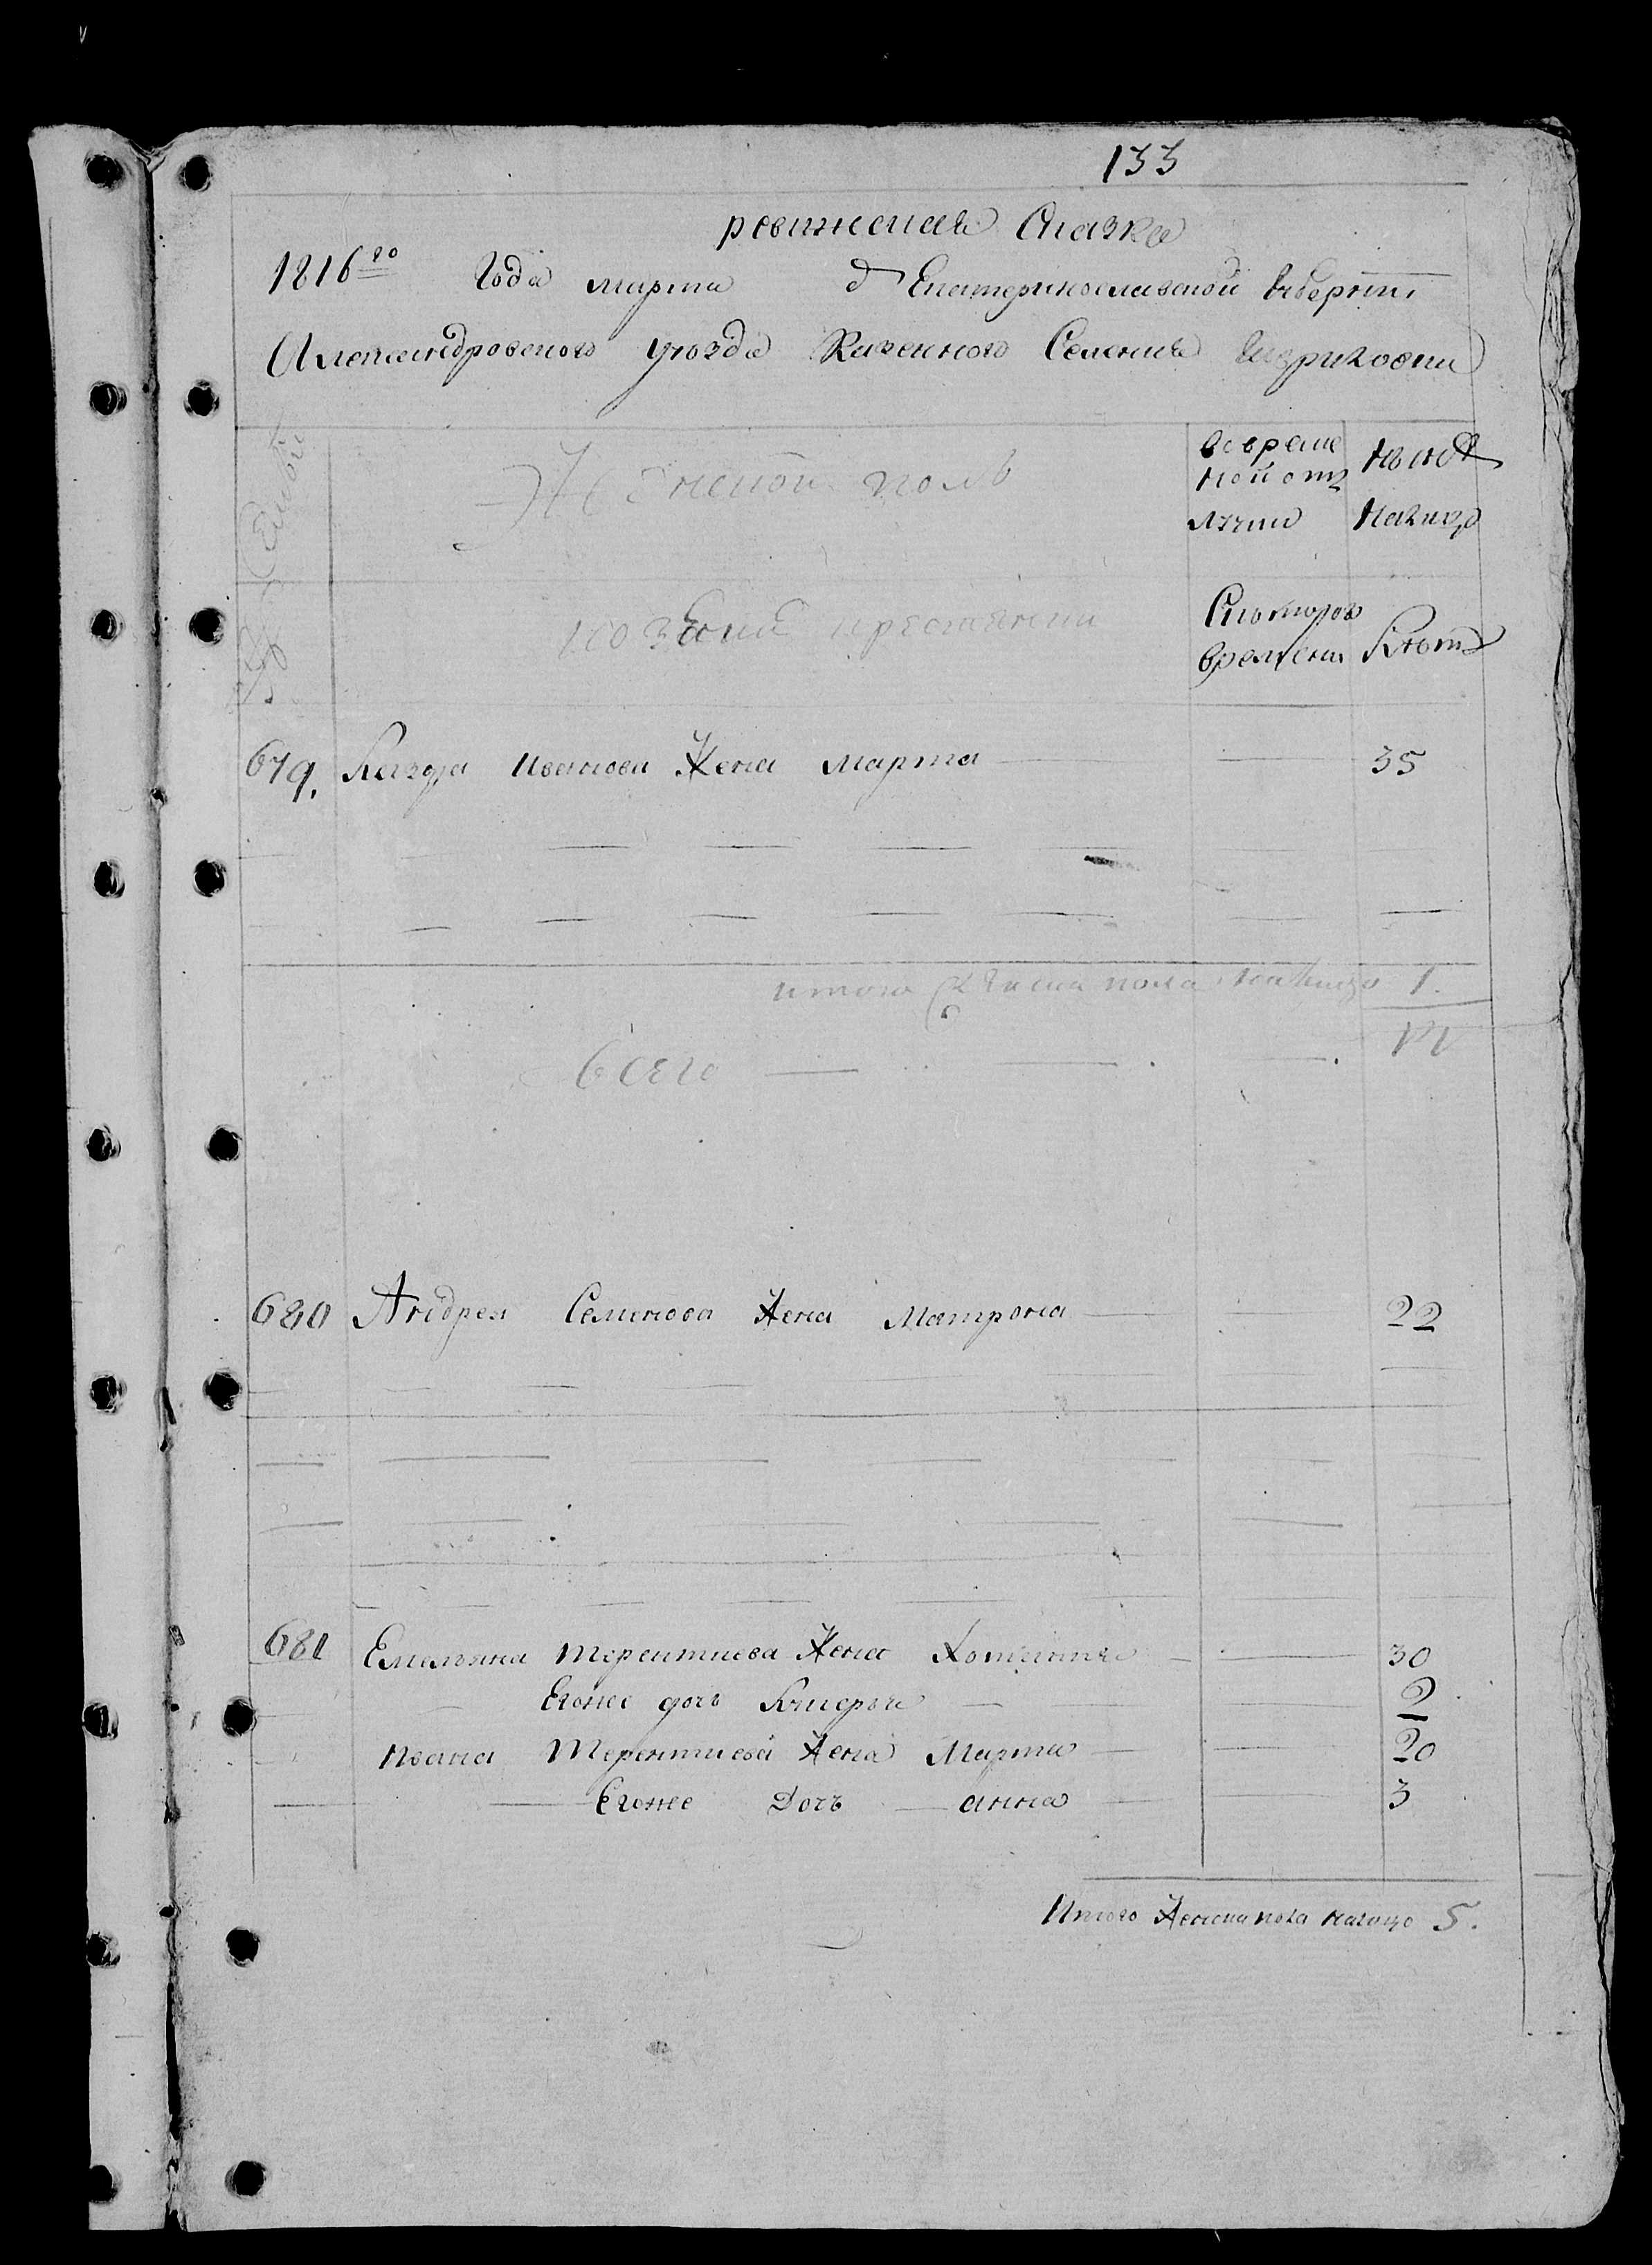 133
ревижская Сказка
1816го Года марта д Екатеринославской Губернии
Александровского уезда Казенного Селения
Женской пол
вовреме
ной от
лучки
Ныне
Налицо
казенные крестьяни
Скоторого
времени
Клет
679. Назара Иванова Жена Марта 35
итого Женска пола налицо 1.
всего
680 Андрея Семенова Жена Матрона 22
681 Емельяна терентиева Жена 30
Егоже дочь 2
Ивана Терентиева Жена Марта 20
Егоже Дочь анна 3
Итого Женска пола налицо 5.